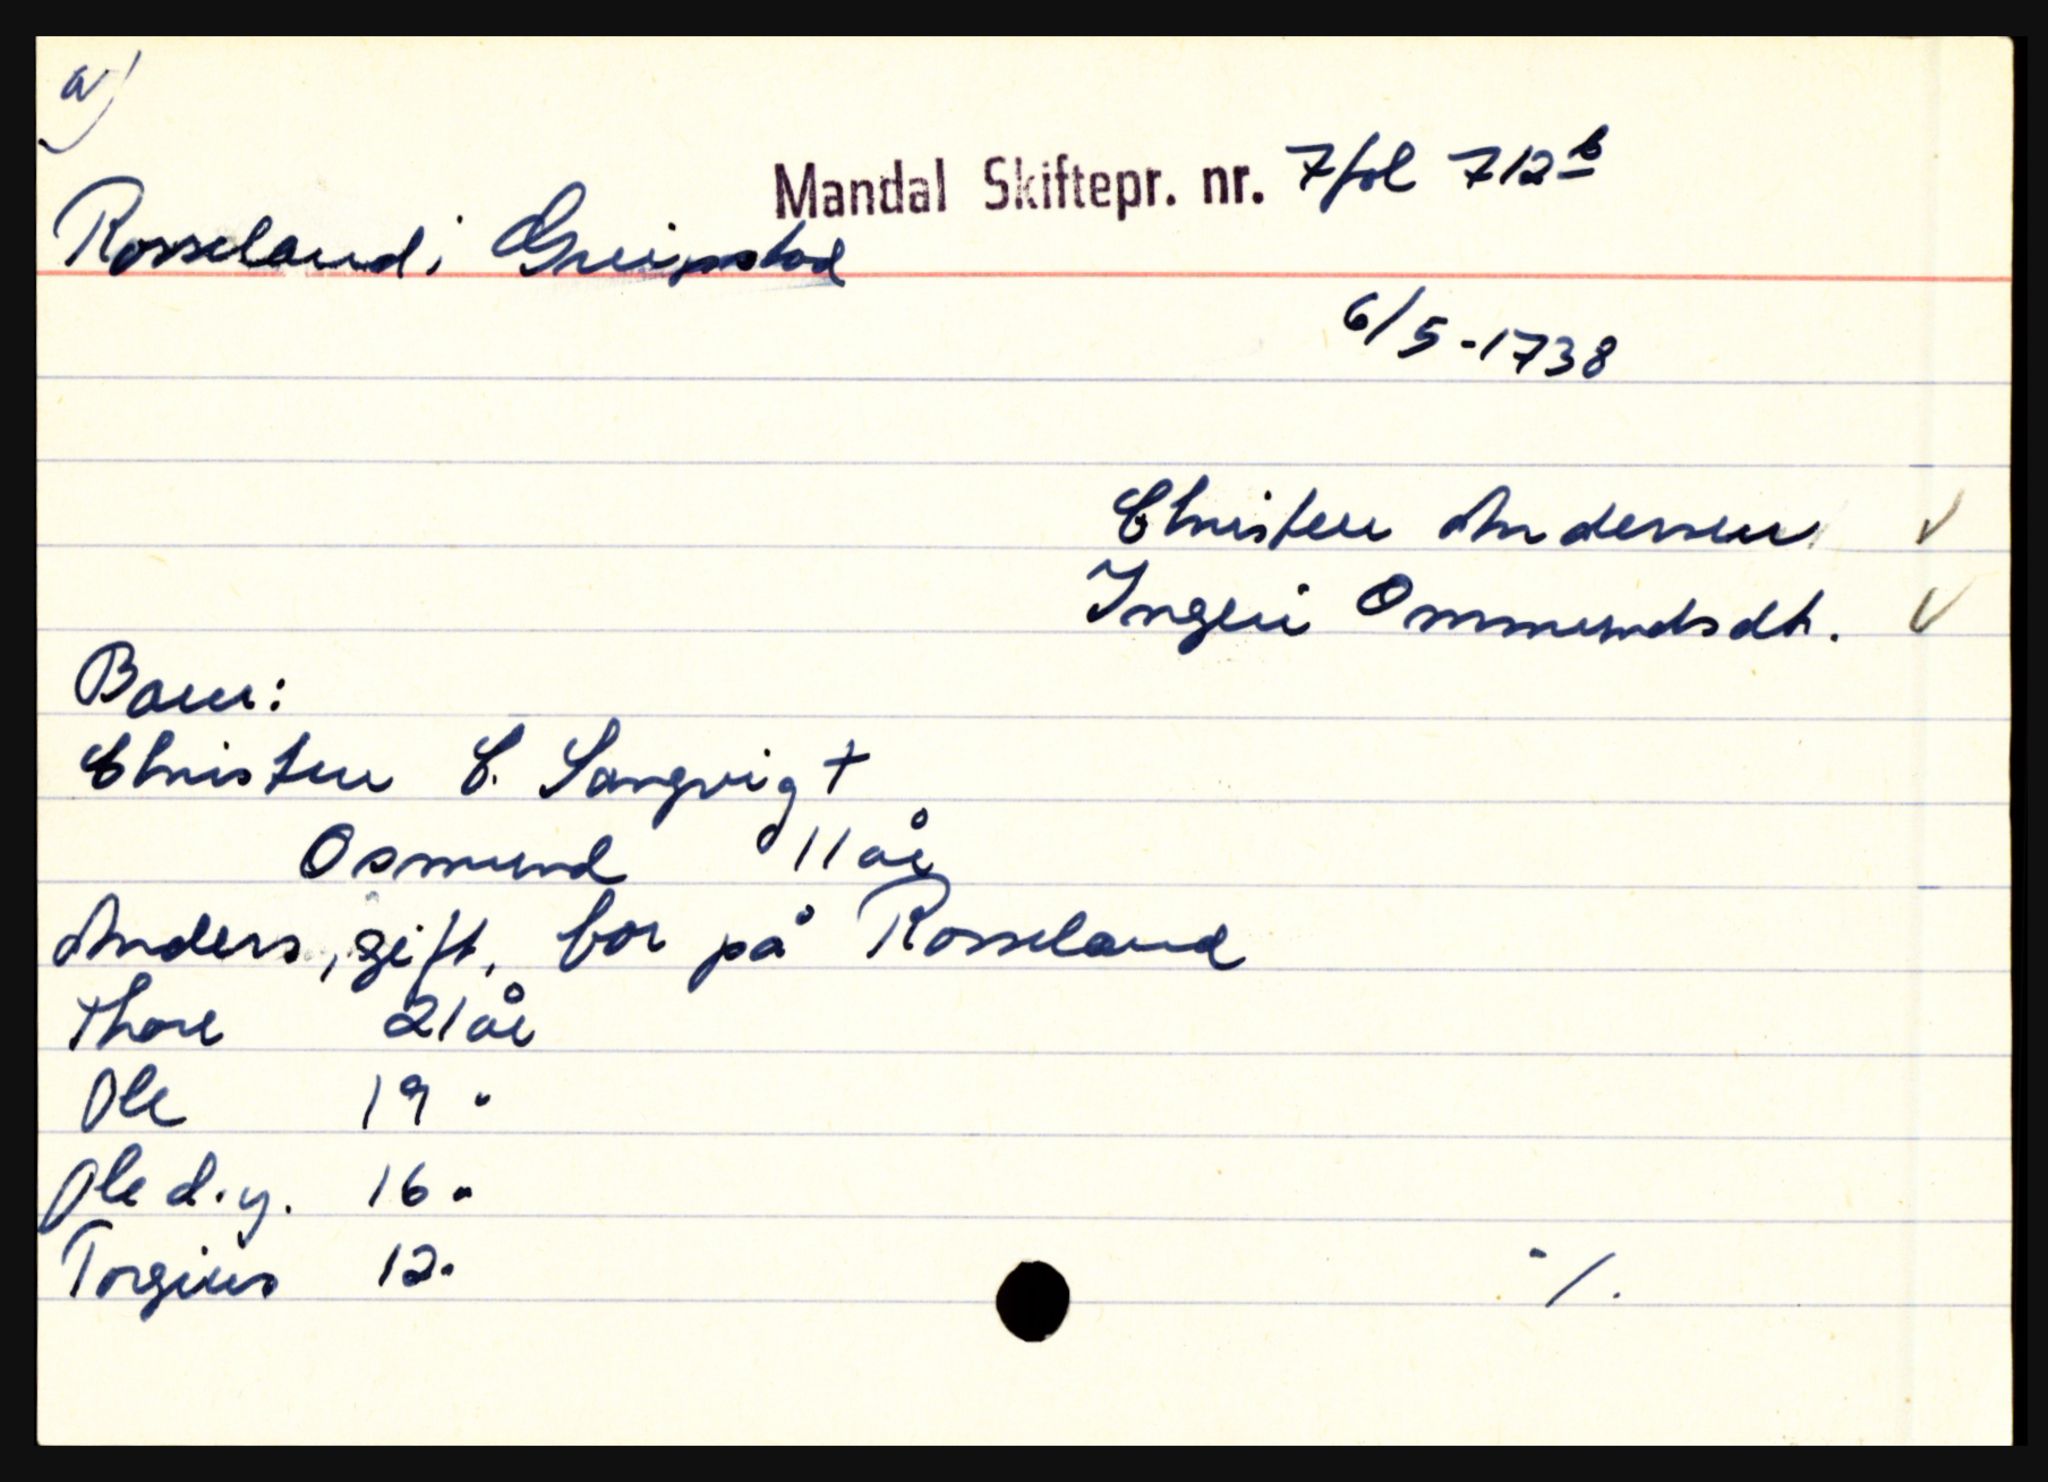 a)
Mandal Skiftepr. nr. 7 fol 712b
Rosseland i Greipstad
6/5-1738
Christen Andersen
Ingeri Ommundsdtr.
Barn:
Christen C. Sangvig +
Osmund 11 år
Anders, gift, bor på Rosseland
Thore 21 år
Ole 19 "
Ole d.y. 16 "
Torgius 12 "
-/.